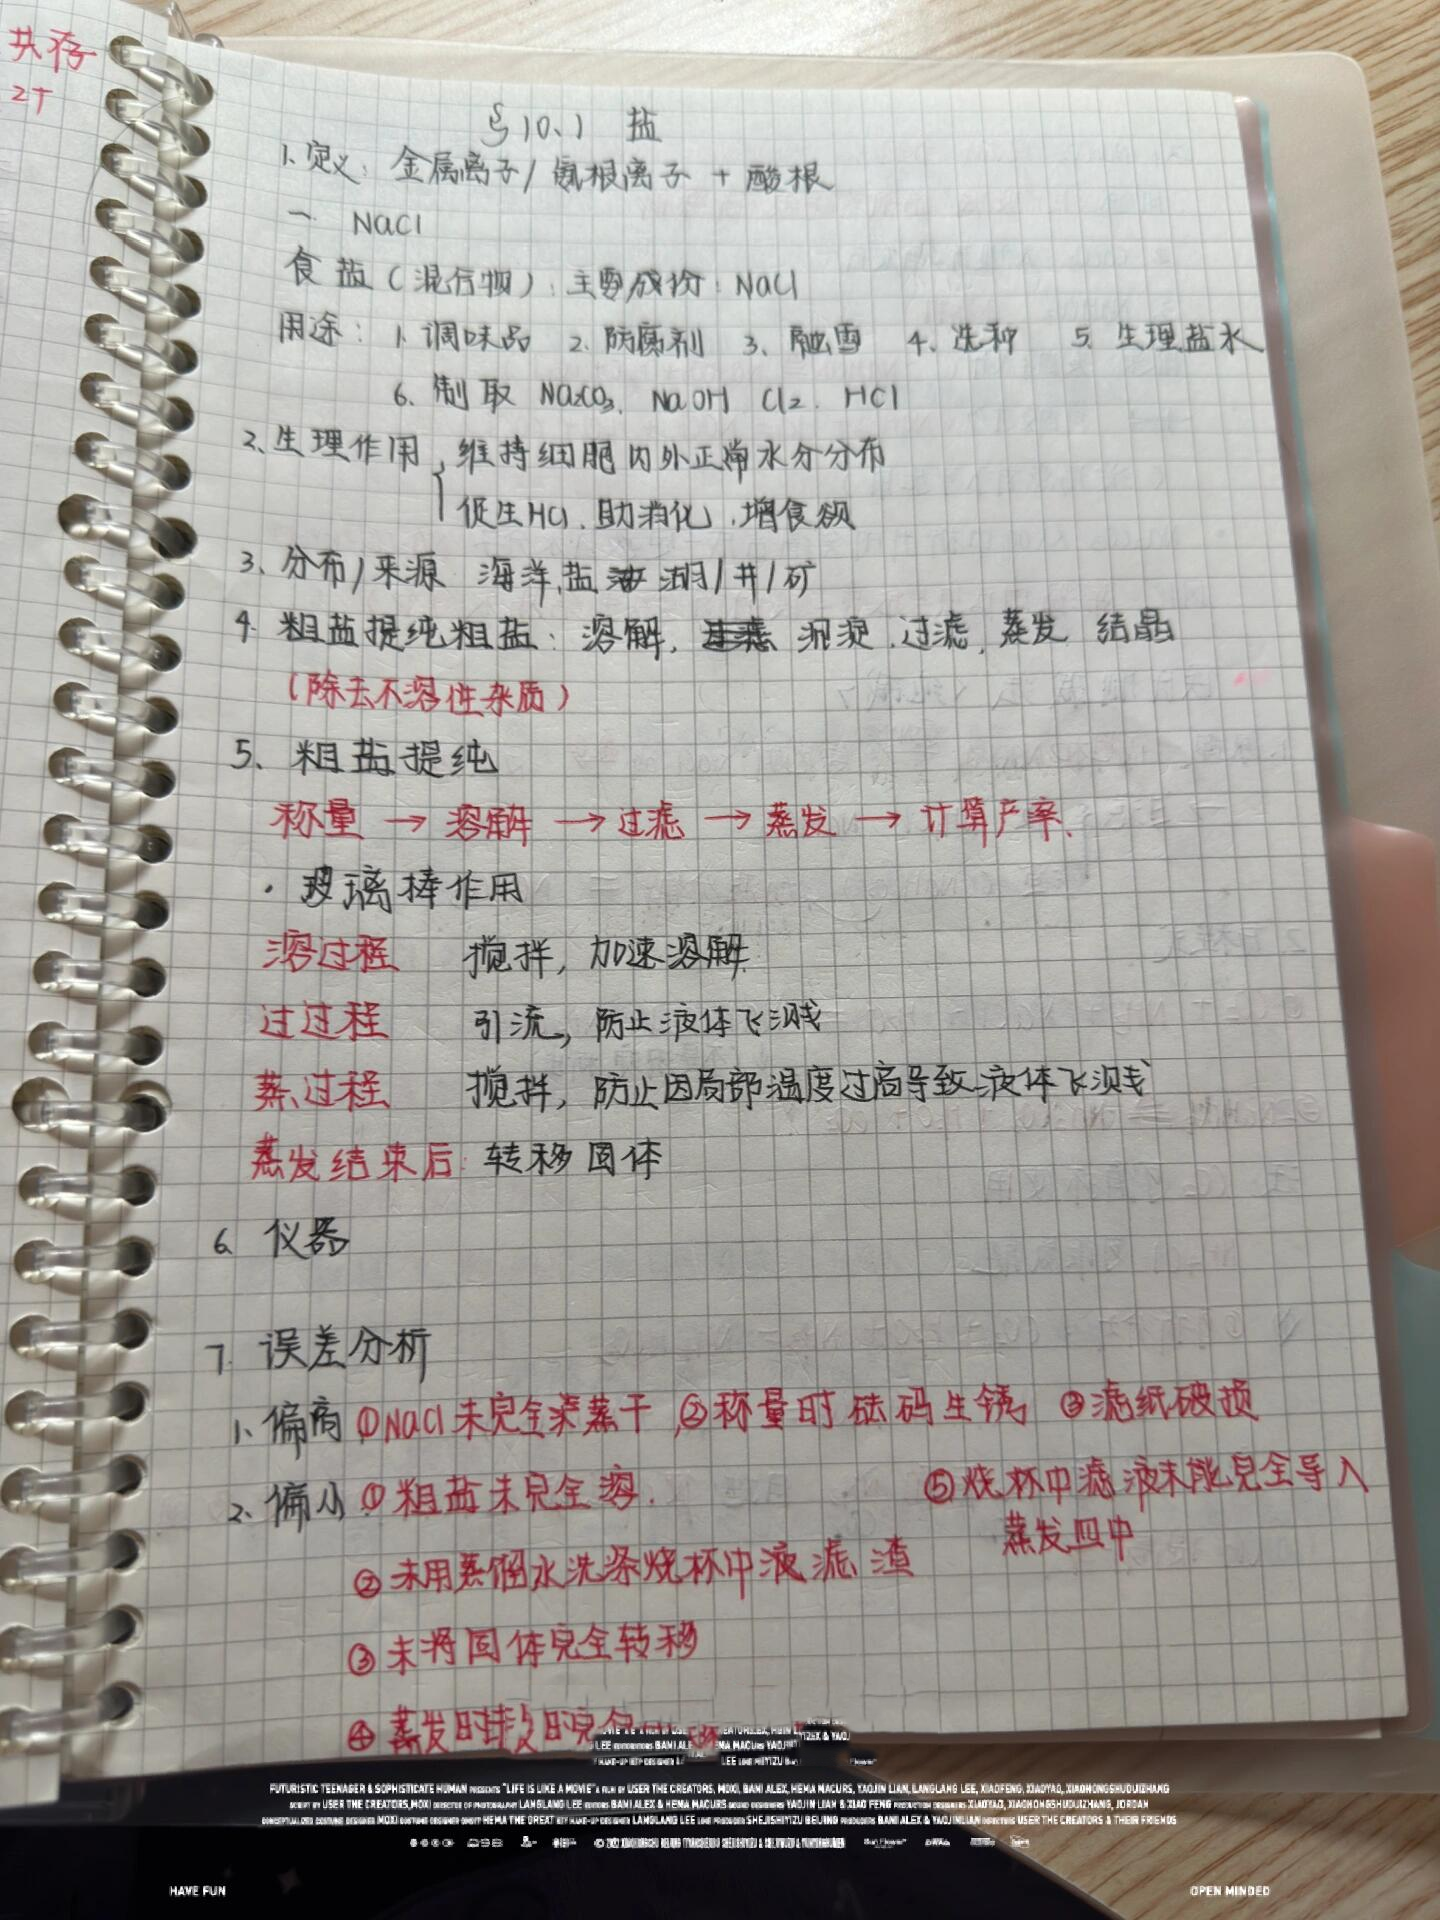 共存
2T
§10.1 盐
1、定义：金属离子/氨根离子 + 酸根
一 NaCl
食盐（混合物）：主要成份：NaCl
用途：1、调味品 2、防腐剂 3、融雪 4、选种 5、生理盐水
6、制取 Na2CO3、NaOH Cl2、HCl
2、生理作用 维持细胞内外正常水分分布
促生HCl、助消化、增食欲
3、分布/来源 海洋、盐湖/井/矿
4、粗盐提纯粗盐：溶解，沉淀、过滤、蒸发 结晶
（除去不溶性杂质）
5、粗盐提纯
称量 → 溶解 → 过滤 → 蒸发 → 计算产率、
·玻璃棒作用
溶过程 搅拌，加速溶解
过过程 引流，防止液体飞溅
蒸过程 搅拌，防止因局部温度过高导致液体飞溅
蒸发结束后：转移固体
6、仪器
7、误差分析
1、偏高 ①NaCl未完全蒸干，②称量时砝码生锈 ③滤纸破损
2、偏小 ①粗盐未完全溶.
⑤烧杯中滤液未能完全导入
蒸发皿中
②未用蒸馏水洗涤烧杯中液滤渣
③未将固体完全转移
④蒸发时
FUTURISTIC TEENAGER & SOPHISTICATE HUMAN PRESENTS "LIFE IS LIKE A MOVIE" A FILM BY USER THE CREATORS, MOXI, BANI ALEX, HEMA MACURS, YAOJIN LIAN, LANGLANG LEE, XIAOFENG, XIAOYAO, XIAOHONGSHUDUIZHANG
SCRIPT BY USER THE CREATORS, MOXI DIRECTOR OF PHOTOGRAPHY LANGLANG LEE EDITORS BANI ALEX & HEMA MACURS SOUND DESIGNERS YAOJIN LIAN & XIAO FENG PRODUCTION DESIGNERS XIAOYAO, XIAOHONGSHUDUIZHANG, JORDAN
CONCEPTUALIZED COSTUME DESIGNER MOXI COSTUME DESIGNER HEMA THE GREAT KEY MAKE-UP DESIGNER LANGLANG LEE LINE PRODUCER SHEJISHIYIZU BEIJING PRODUCERS BANI ALEX & YAOJINLIAN DIRECTORS USER THE CREATORS & THEIR FRIENDS
HAVE FUN
OPEN MINDED